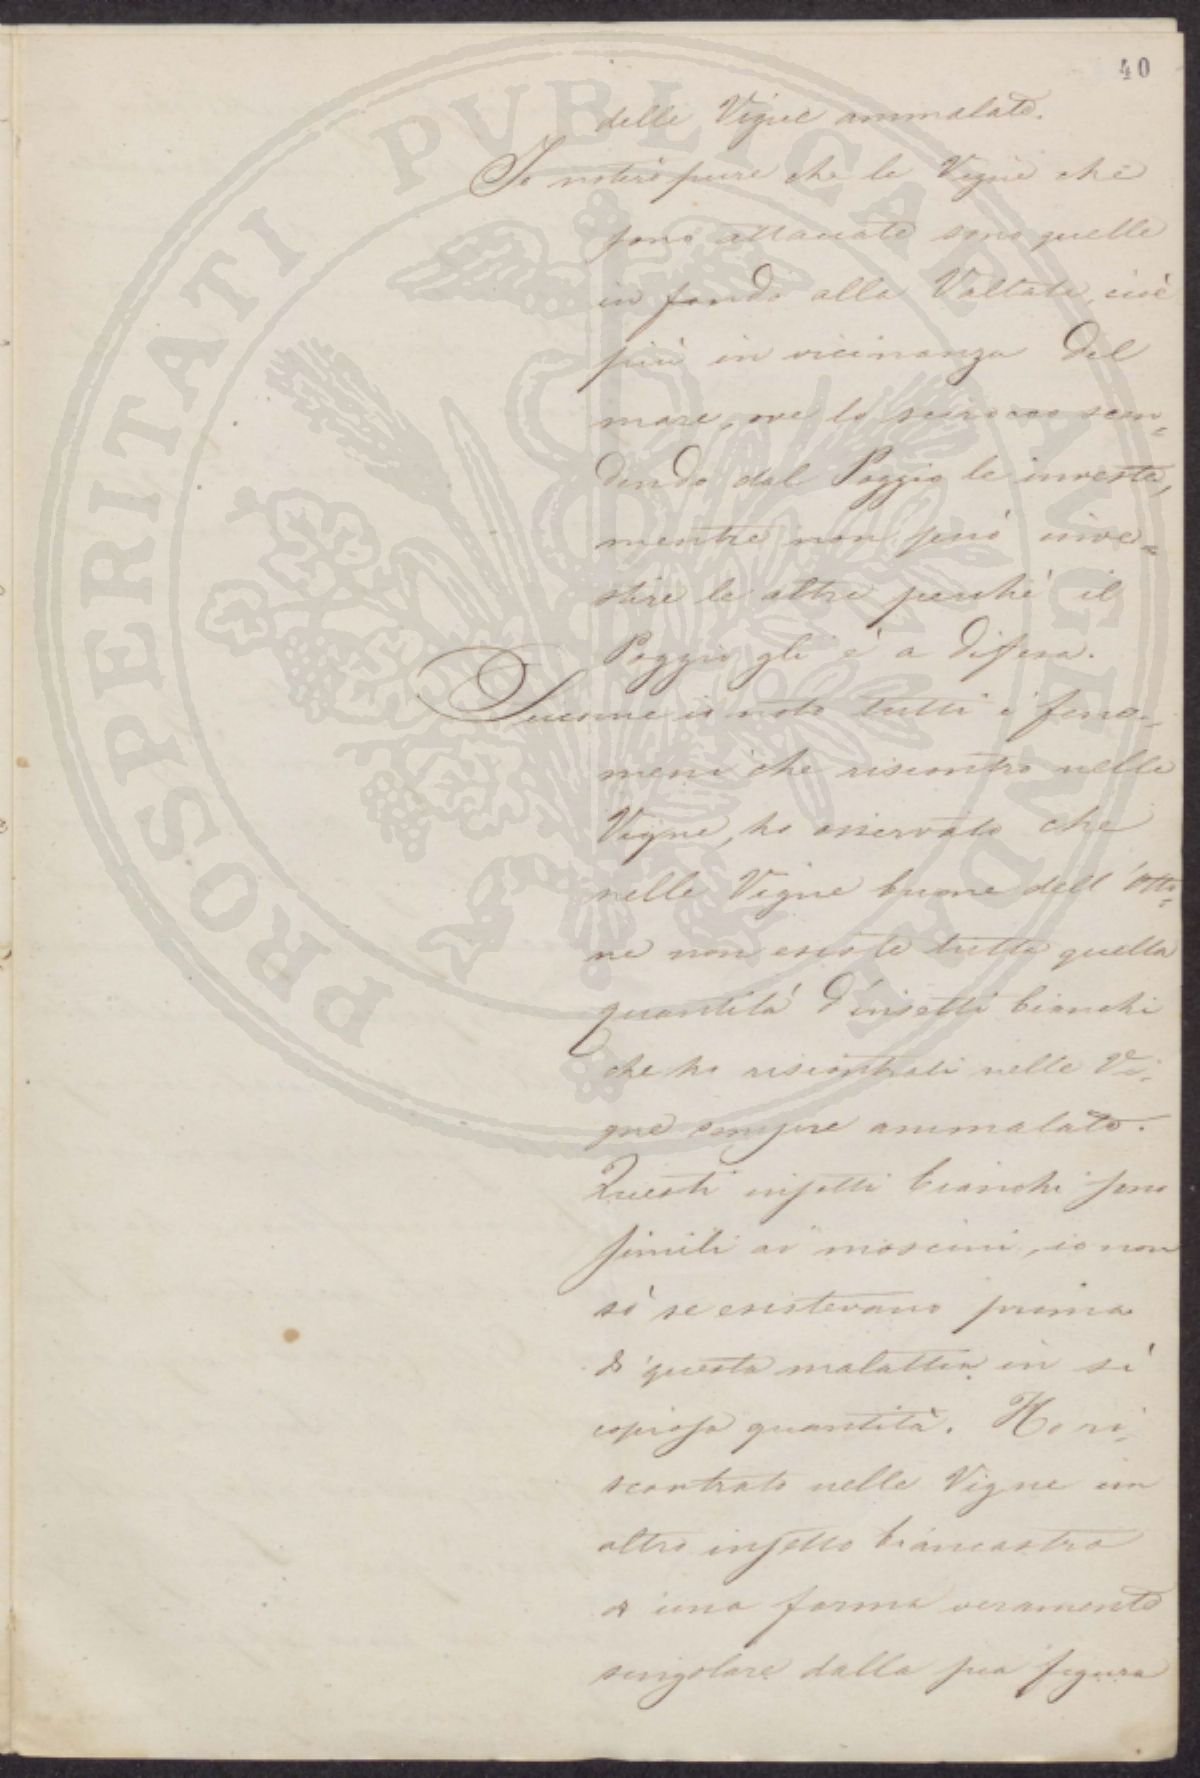 40
delle Vigne ammalate.
Io noterò pure che le Vigne che
sono attaccate sono quelle
in fondo alla Vallata, cioè
più in vicinanza del
mare, ove lo scirocco scen=
dendo dal Poggio le investe,
mentre non può inve=
stire le altre perchè il
Poggio gli è a difesa.
Siccome io noto tutti i feno=
meni che riscontro nelle
Vigne, ho osservato che
nelle Vigne buone dell'Otto=
ne non esiste tutta quella
quantità d'insetti bianchi
che ho riscontrati nelle Vi=
gne sempre ammalate.
Questi insetti bianchi sono
simili ai moscini, io non
sò se esistevano prima
di questa malattia in sì
copiosa quantità. Ho ri=
scontrato nelle Vigne un
altro insetto biancastro
di una forma veramente
singolare dalla sua figura
PROSPERITATI PUBLICAE AUGENDAE